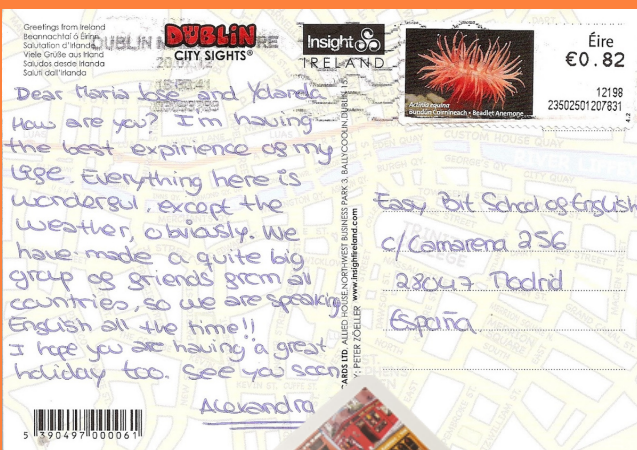 Greetings from Ireland
Beannachtaí ó Éirinn
Salutation d'Irlande
Viele Grüße aus Irland
Saludos desde Irlanda
Saluti dall'Irlanda
DUBLIN
CITY SIGHTS®
Insight
IRELAND
Éire
€0.82
12198
23502501207831
4.2
Actinia equina
Bundún Coirníneach • Beadlet Anemone
Dear Maria and Yolanda
How are you? I'm having
the best expirience of my
life. Everything here is
wonderful, except the
weather, obviously. We
have made a quite big
group of friends from all
countries, so we are speaking
English all the time!!
I hope you are having a great
holiday too. See you soon
Alexandra
5 390497 000061
CARDS LTD. ALLIED HOUSE, NORTHWEST BUSINESS PARK 3, BALLYCOOLIN, DUBLIN 15.
Y: PETER ZÖELLER www.insightireland.com
Easy Bit School of English
c/Camarena 256
28047 Madrid
España